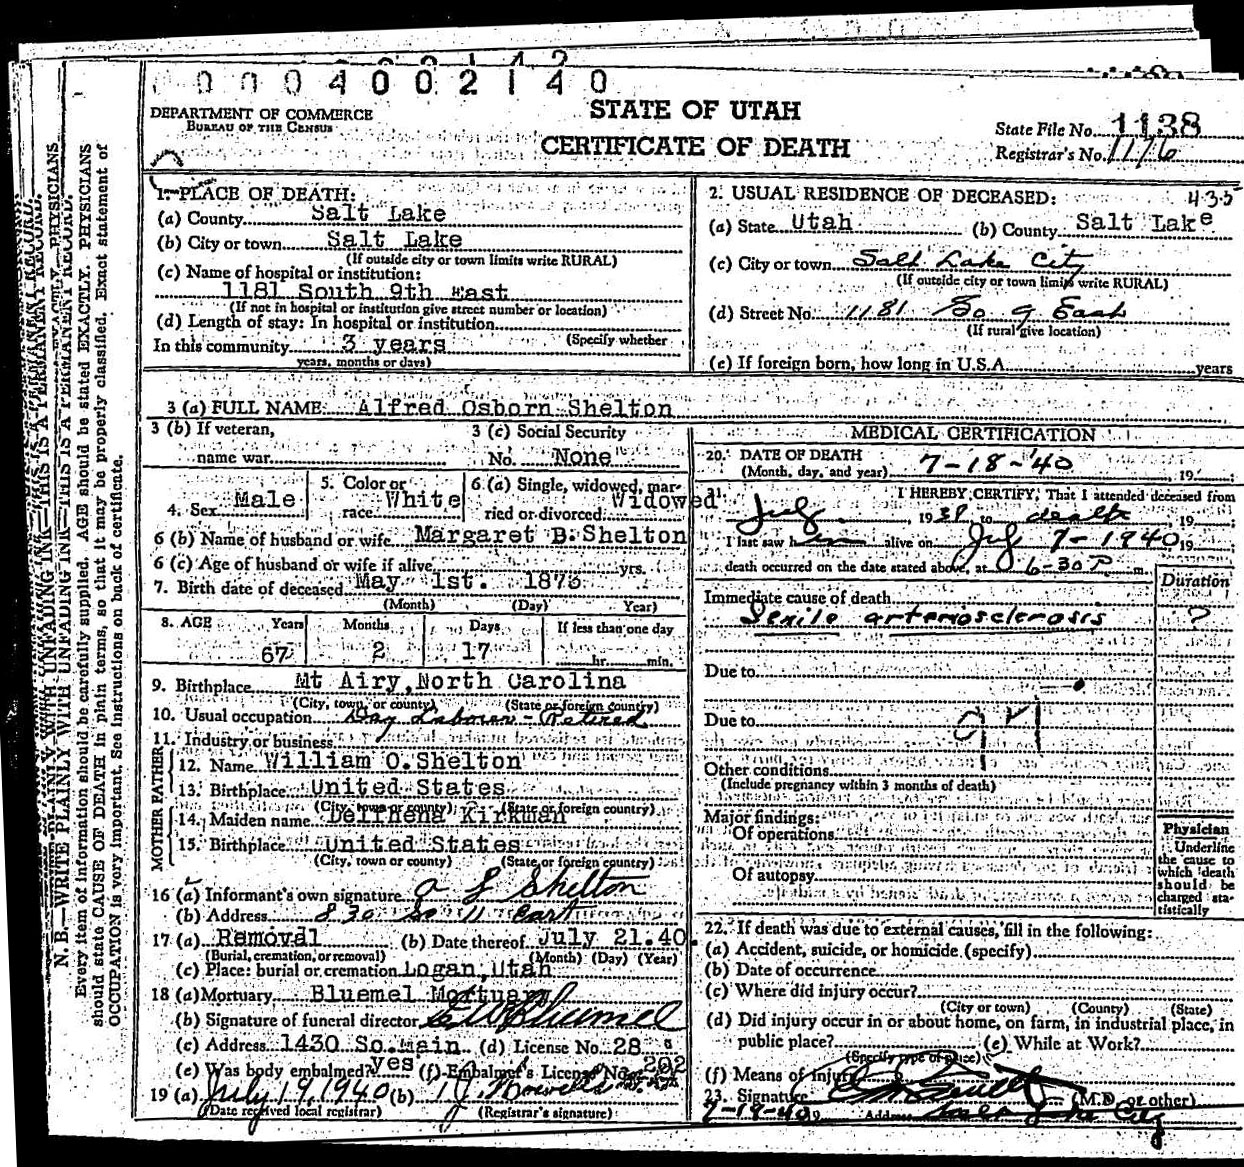 0004002140
DEPARTMENT OF COMMERCE
BUREAU OF THE CENSUS
STATE OF UTAH
CERTIFICATE OF DEATH
State File No. 1138
Registrar's No. 1176
1. PLACE OF DEATH:
(a) County Salt Lake
(b) City or town Salt Lake
(If outside city or town limits write RURAL)
(c) Name of hospital or institution:
1181 South 9th East
(If not in hospital or institution give street number or location)
(d) Length of stay: In hospital or institution
(Specify whether
In this community 3 years
years, months or days)
2. USUAL RESIDENCE OF DECEASED: 435
(a) State Utah (b) County Salt Lake
(c) City or town Salt Lake City
(If outside city or town limits write RURAL)
(d) Street No. 1181 So 9 East
(If rural give location)
(e) If foreign born, how long in U.S.A. years
3 (a) FULL NAME Alfred Osborn Shelton
3 (b) If veteran,
name war
3 (c) Social Security
No. None
4. Sex Male
5. Color or
race White
6 (a) Single, widowed, mar-
ried or divorced Widowed
6 (b) Name of husband or wife Margaret B. Shelton
6 (c) Age of husband or wife if alive yrs.
7. Birth date of deceased May 1st. 1873
(Month) (Day) Year)
8. AGE Years Months Days If less than one day
67 2 17 hr. min.
9. Birthplace Mt Airy, North Carolina
(City, town, or county) (State or foreign country)
10. Usual occupation Day Laborer - Retired
11. Industry or business
FATHER
12. Name William O. Shelton
13. Birthplace United States
(City, town or county) (State or foreign country)
MOTHER
14. Maiden name Kirkman
15. Birthplace United States
(City, town or county) (State or foreign country)
16 (a) Informant's own signature Shelton
(b) Address 830 So 11 East
17 (a) Removal (b) Date thereof July 21.40.
(Burial, cremation, or removal) (Month) (Day) (Year)
(c) Place: burial or cremation Logan, Utah
18 (a) Mortuary Bluemel Mortuary
(b) Signature of funeral director Bluemel
(c) Address 1430 So. Main (d) License No. 28
(e) Was body embalmed? yes (f) Embalmer's License No. 202
19 (a) July 19, 1940 (b)
(Date received local registrar) (Registrar's signature)
MEDICAL CERTIFICATION
20. DATE OF DEATH
(Month, day, and year) 7-18-'40 , 19
21. I HEREBY CERTIFY, That I attended deceased from
July , 19 to death , 19
I last saw h im alive on July 7-1940 19
death occurred on the date stated above, at 6-30 P. m.
Duration
Immediate cause of death
Senile arteriosclerosis ?
Due to
Due to
Other conditions
(Include pregnancy within 3 months of death)
Major findings:
Of operations
Of autopsy
Physician
Underline
the cause to
which death
should be
charged sta-
tistically
22. If death was due to external causes, fill in the following:
(a) Accident, suicide, or homicide (specify)
(b) Date of occurrence
(c) Where did injury occur?
(City or town) (County) (State)
(d) Did injury occur in or about home, on farm, in industrial place, in
public place? (e) While at Work?
(Specify type of place)
(f) Means of injury
23. Signature (M.D. or other)
7-18-40 19 Address Salt Lake City
N. B.—WRITE PLAINLY WITH UNFADING INK—THIS IS A PERMANENT RECORD.
Every item of information should be carefully supplied. AGE should be stated EXACTLY. PHYSICIANS
should state CAUSE OF DEATH in plain terms, so that it may be properly classified. Exact statement of
OCCUPATION is very important. See instructions on back of certificate.